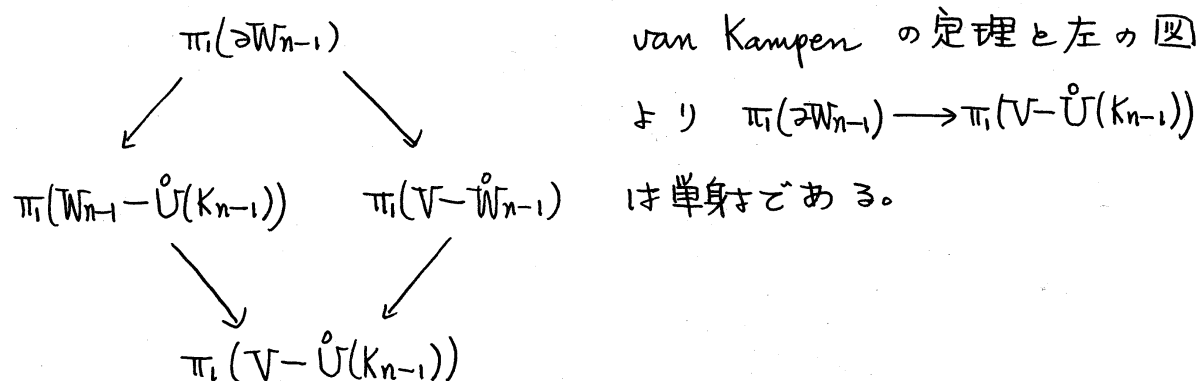 π₁(∂Wn-1)
π₁(Wn-1 - Ů(Kn-1)) π₁(V - W̊n-1)
π₁(V - Ů(Kn-1))
van Kampen の定理と左の図
より π₁(∂Wn-1) → π₁(V - Ů(Kn-1))
は単射である。